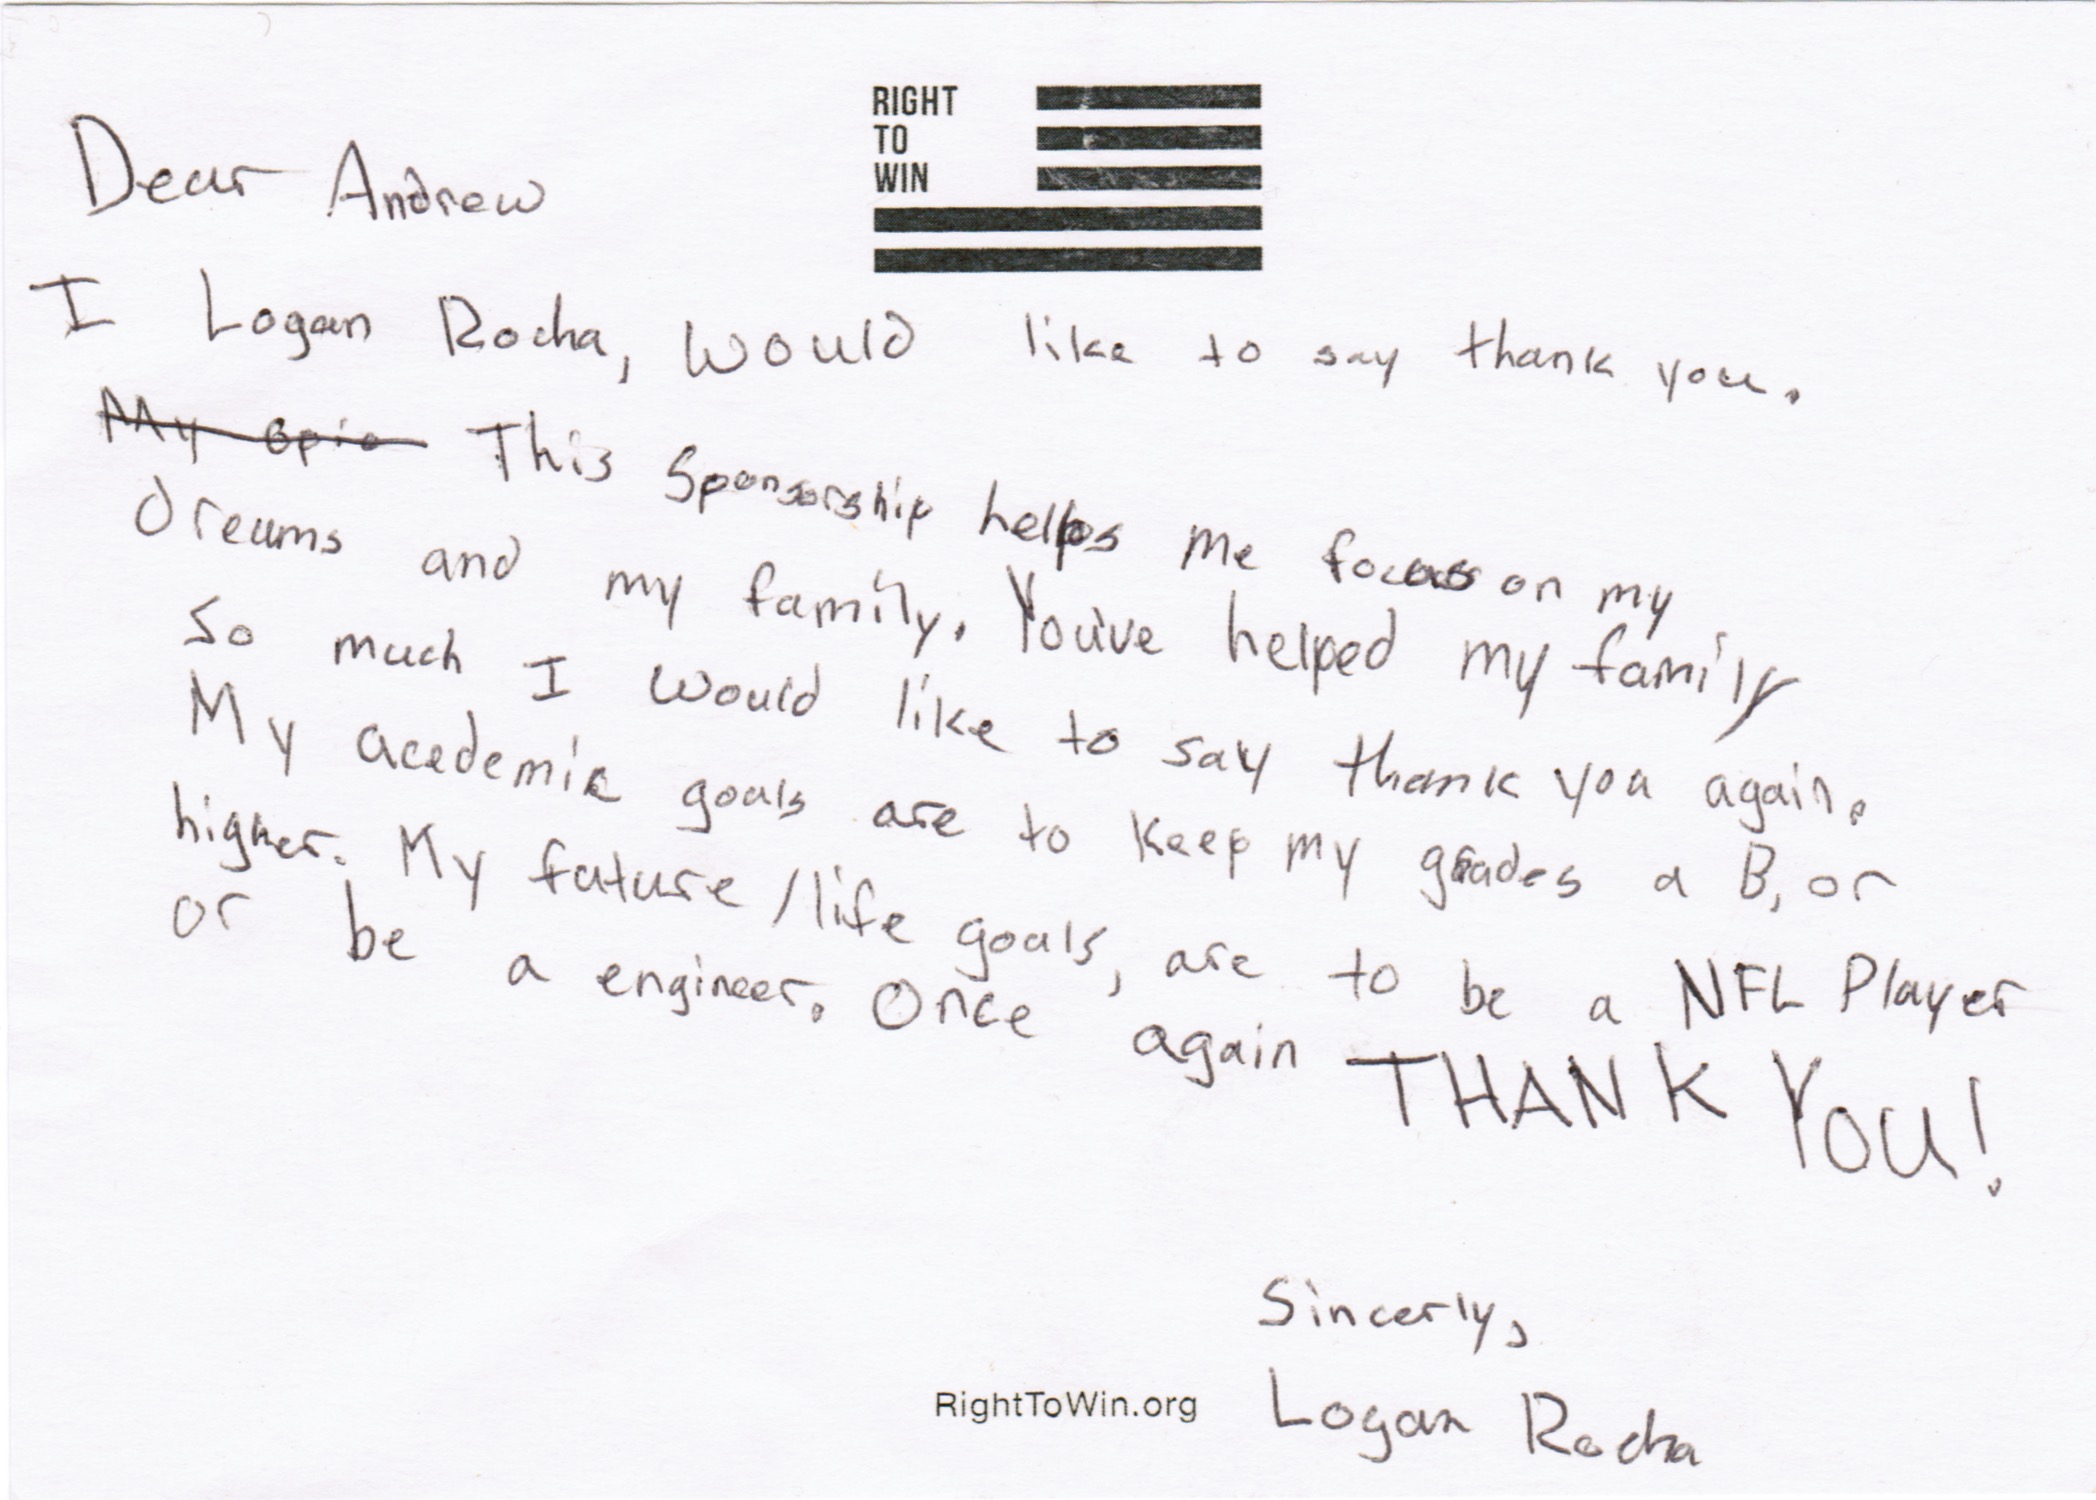 RIGHT
TO
WIN
Dear Andrew
I Logan Rocha, would like to say thank you.
My opio This Sponsorship helps me focus on my
dreams and my family. You've helped my family
so much I would like to say thank you again.
My acedemic goals are to keep my grades a B, or
higher. My future/life goals, are to be a NFL Player
or be a engineer. Once again THANK YOU!
Sincerly,
Logan Rocha
RightToWin.org